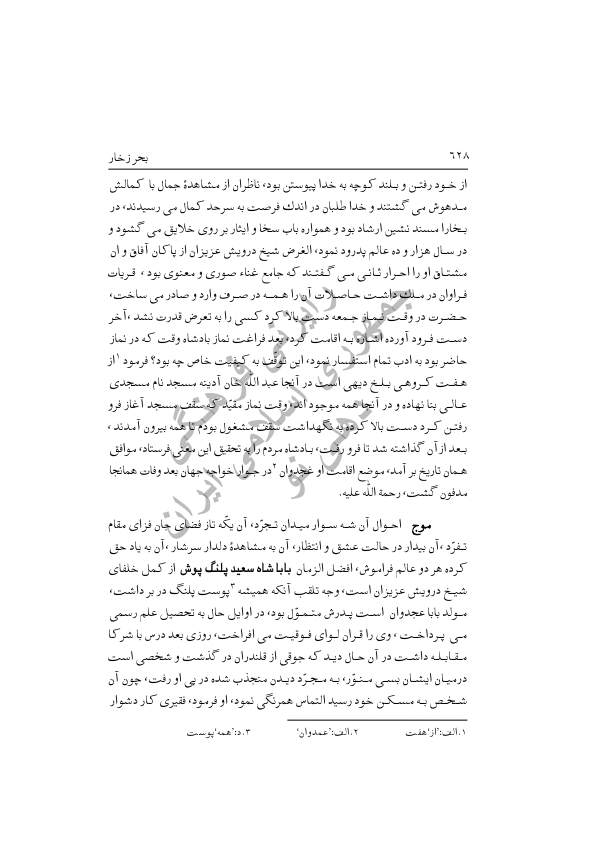 ۶۲۸ بحر زخار
از خود رفتن و بلند کوچه به خدا پیوستن بود، ناظران از مشاهدۀ جمال با کمالش
مدهوش می گشتند و خدا طلبان در اندك فرصت به سرحد کمال می رسیدند، در
بخارا مسند نشین ارشاد بود و همواره باب سخا و ایثار بر روی خلایق می گشود و
در سال هزار و ده عالم پدرود نمود، الغرض شیخ درویش عزیزان از پاکان آفاق و ان
مشتاق او را احرار ثانی می گفتند که جامع غناء صوری و معنوی بود ، قریات
فراوان در ملك داشت حاصلات آن را همه در صرف وارد و صادر می ساخت،
حضرت در وقت نماز جمعه دست بالا کرد کسی را به تعرض قدرت نشد ،آخر
دست فرود آورده اشاره به اقامت کرد، بعد فراغت نماز بادشاه وقت که در نماز
حاضر بود به ادب تمام استفسار نمود، این توقّف به کیفیت خاص چه بود؟ فرمود ۱از
هفت کروهی بلخ دیهی است در آنجا عبد اللّه خان آدینه مسجد نام مسجدی
عالی بنا نهاده و در آنجا همه موجود اند، وقت نماز مقیّد که سقف مسجد آغاز فرو
رفتن کرد دست بالا کرده به نگهداشت سقف مشغول بودم تا همه بیرون آمدند ،
بعد از آن گذاشته شد تا فرو رفت، بادشاه مردم را به تحقیق این معنی فرستاد، موافق
همان تاریخ بر آمد، موضع اقامت او غجدوان ۲در جوار خواجه جهان بعد وفات همانجا
مدفون گشت، رحمة اللّه علیه.
موج احوال آن شه سوار میدان تجرّد، آن یکّه تاز فضای جان فزای مقام
تفرّد ،آن بیدار در حالت عشق و انتظار، آن به مشاهدۀ دلدار سرشار ،آن به یاد حق
کرده هر دو عالم فراموش، افضل الزمان بابا شاه سعید پلنگ پوش از کمل خلفای
شیخ درویش عزیزان است، وجه تلقب آنکه همیشه ۳پوست پلنگ در بر داشت،
مولد بابا عجدوان است پدرش متموّل بود، در اوایل حال به تحصیل علم رسمی
می پرداخت ، وی را قران لوای فوقیت می افراخت، روزی بعد درس با شرکا
مقابله داشت در آن حال دید که جوقی از قلندران در گذشت و شخصی است
درمیان ایشان بسی منوّر، به مجرّد دیدن منجذب شده در پی او رفت، چون آن
شخص به مسکن خود رسید التماس همرنگی نمود، او فرمود، فقیری کار دشوار
۱.الف:'از'هفت ۲.الف:'عمدوان' ۳.د:'همه'پوست